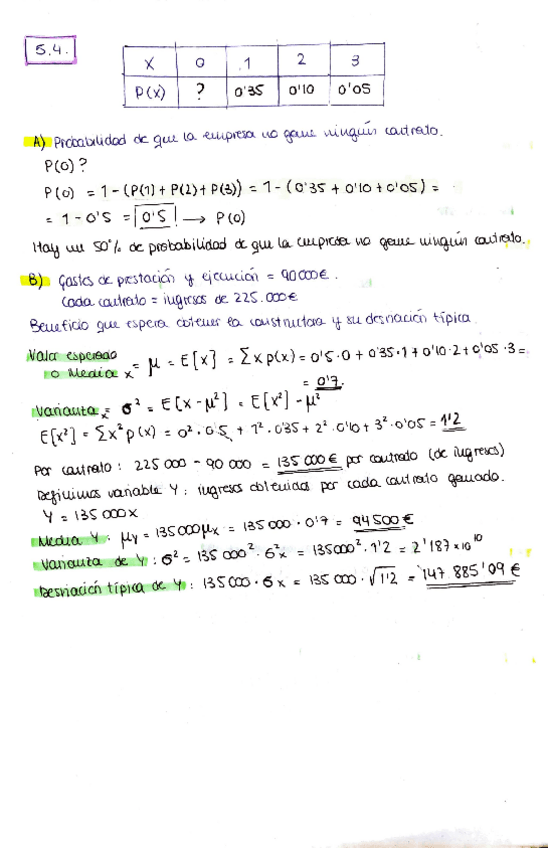 5.4.
X 0 1 2 3
P(X) ? 0'35 0'10 0'05
A) Probabilidad de que la empresa no gane ningún contrato.
P(0)?
P(0) = 1 - (P(1) + P(2) + P(3)) = 1 - (0'35 + 0'10 + 0'05) =
= 1 - 0'5 = 0'5! → P(0)
Hay un 50% de probabilidad de que la empresa no gane ningún contrato.
B) Gastos de prestación y ejecución = 90000€.
Cada contrato = ingresos de 225.000€
Beneficio que espera obtener la constructora y su desviación típica
Valor esperado
o Media x = μ = E[X] = ΣX p(x) = 0'5·0 + 0'35·1 + 0'10·2 + 0'05·3 =
= 0'7.
Varianza x = σ² = E[X - μ²] = E[X²] - μ²
E[X²] = Σx² p(x) = 0²·0'5 + 1²·0'35 + 2²·0'10 + 3²·0'05 = 1'2
Por contrato: 225 000 - 90 000 = 135 000 € por contrato (de ingresos)
Definimos variable Y: ingresos obtenidos por cada contrato ganado.
Y = 135 000X
Media Y: μy = 135000μx = 135 000 · 0'7 = 94 500 €
Varianza de Y: σ² = 135 000² · σ²x = 135000² · 1'2 = 2'187×10¹⁰
Desviación típica de Y: 135 000 · σx = 135 000 · √1'2 = 147 885'09 €